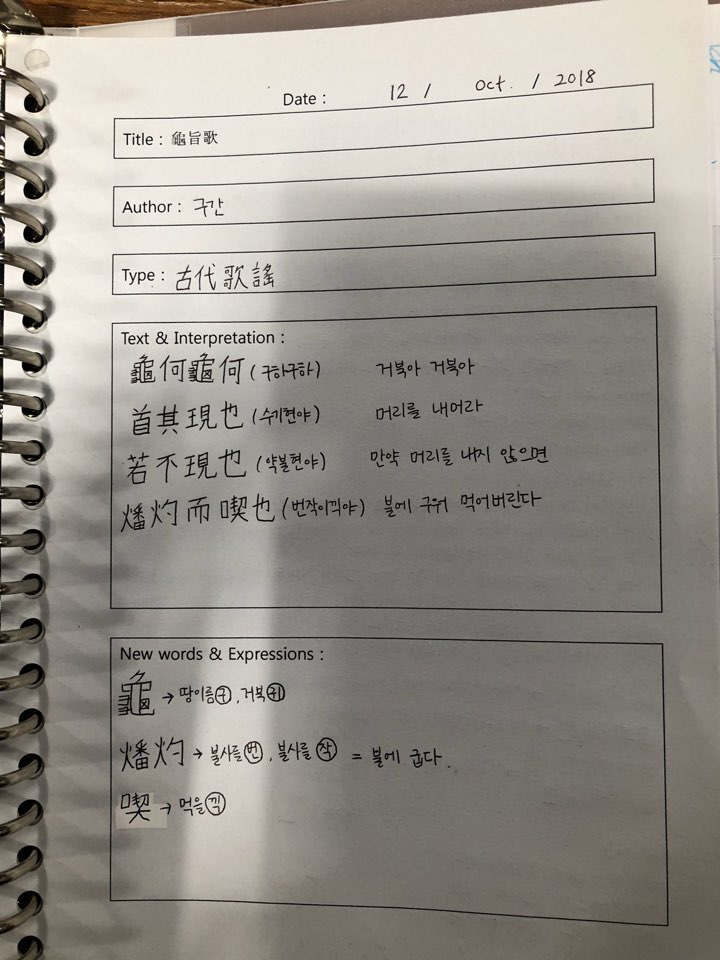 Date : 12 / Oct. / 2018
Title : 龜旨歌
Author : 구간
Type : 古代歌謠
Text & Interpretation :
龜何龜何 (구하구하) 거북아 거북아
首其現也 (수기현야) 머리를 내어라
若不現也 (약불현야) 만약 머리를 내지 않으면
燔灼而喫也 (번작이끽야) 불에 구워 먹어버린다
New words & Expressions :
龜 → 땅이름 구, 거북 귀
燔灼 → 불사를 번, 불사를 작 = 불에 굽다.
喫 → 먹을 끽